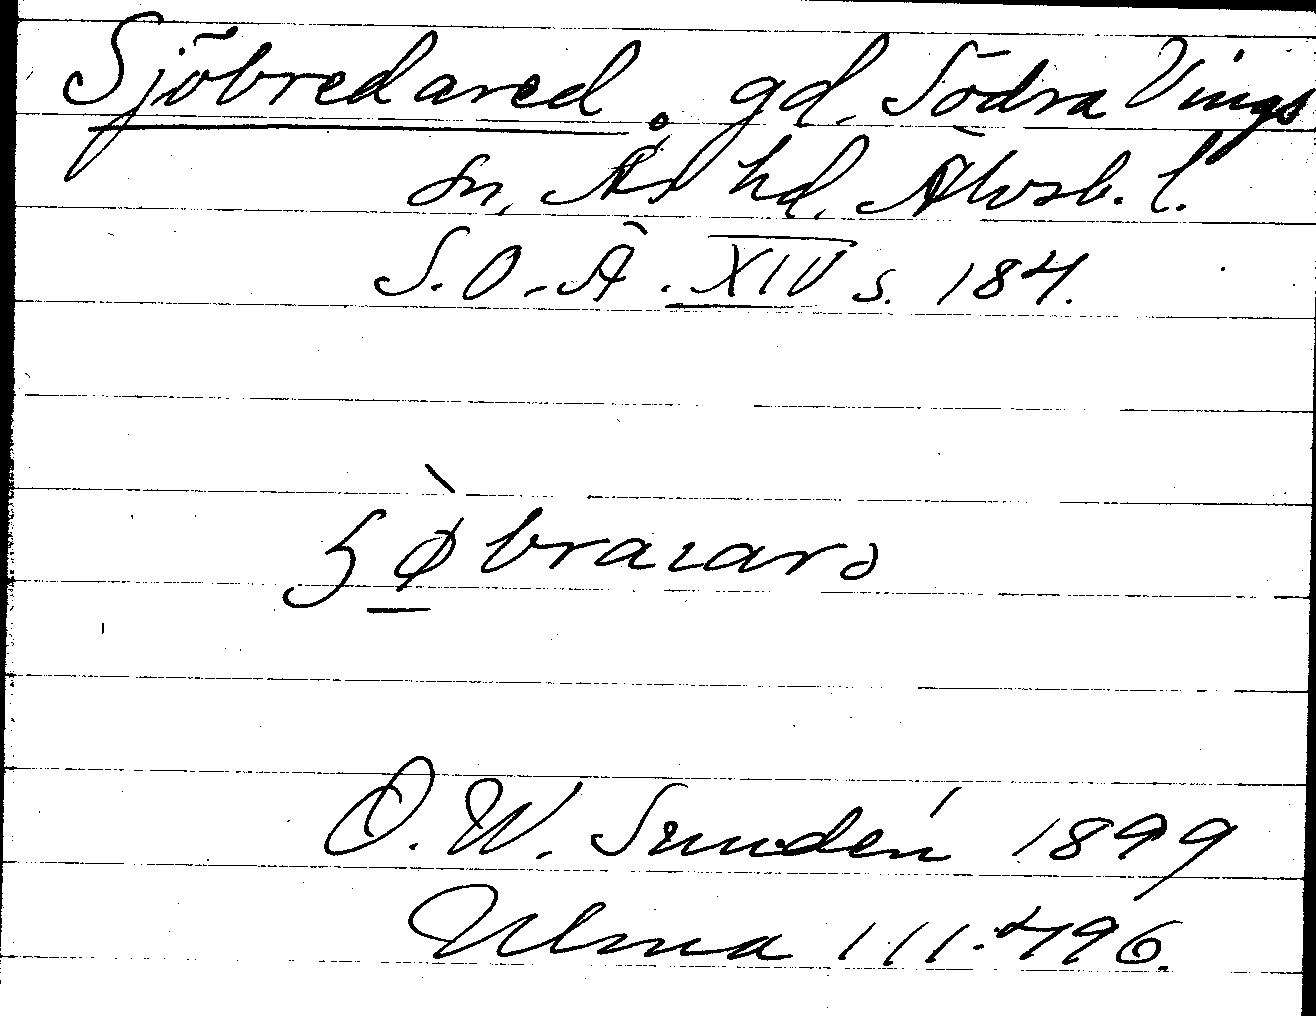 Sjöbredared. gd. Södra Vings
sn, Ås hd. Älvsb. l.
S. O. Ä. XIV s. 184.
brazarə
D. W. Sundén 1899
Ulma 111:496.